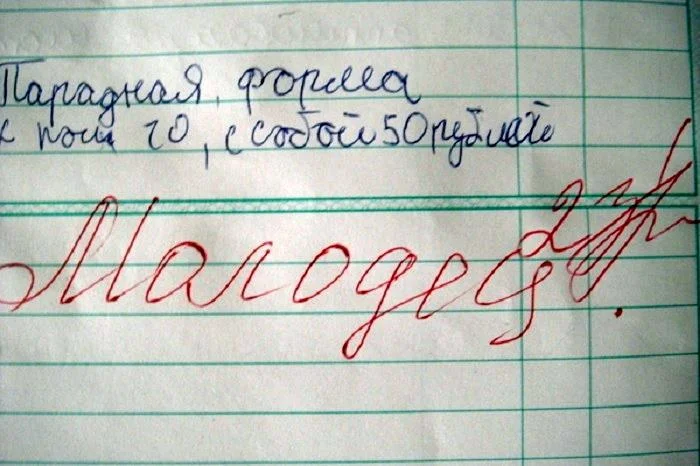 Парадная, форма
к , с собой 50 рублей
Малодец 2